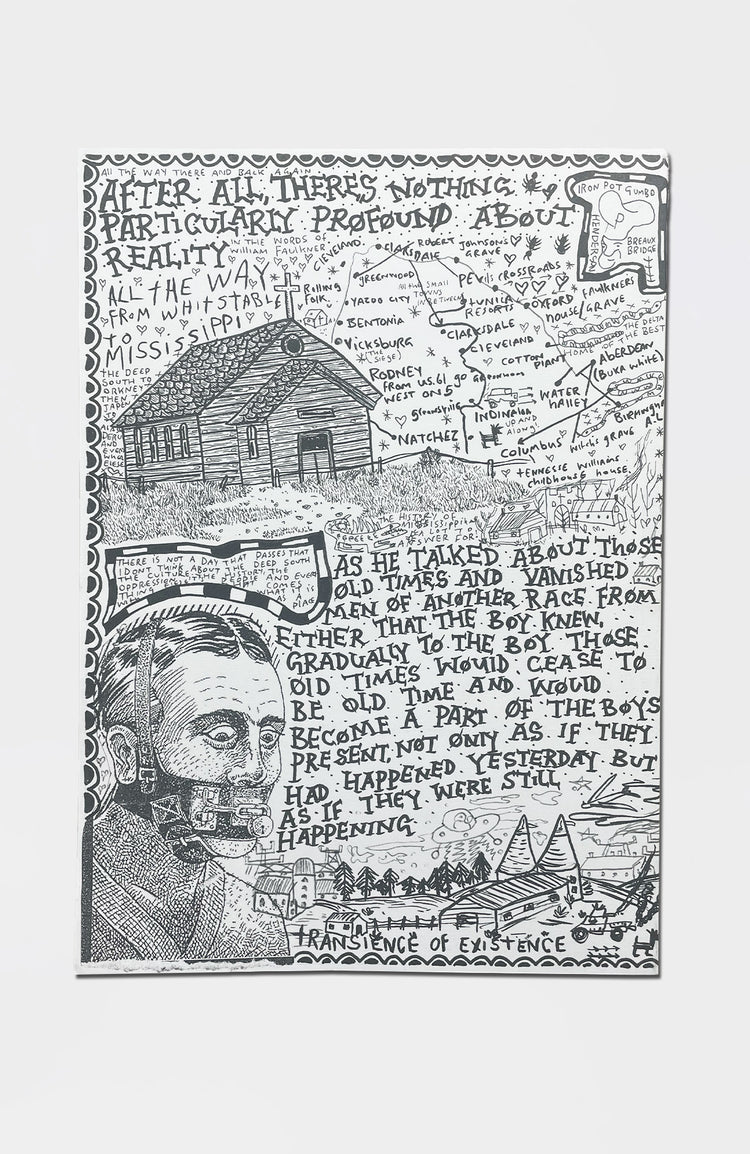 ALL THE WAY THERE AND BACK AGAIN
AFTER ALL, THERE'S NOTHING
PARTICULARLY PROFOUND ABOUT
REALITY
IN THE WORDS OF
WILLIAM FAULKNER
ALL THE WAY
FROM WHITSTABLE
TO
MISSISSIPPI
THE DEEP
SOUTH TO
ORKNEY
THEN
IRON POT GUMBO
HENDERSON
BREAUX
BRIDGE
CLEVELAND
CLARKSDALE
ROBERT JOHNSONS
GRAVE
Rolling
Fork
GREENWOOD
All the small
Towns
in between
DEVILS CROSSROADS
YAZOO CITY
TUNICA
RESORTS
OXFORD
FAULKNERS
house/GRAVE
BENTONIA
CLARKSDALE
THE DELTA
HOME OF THE BEST
Vicksburg
(THE
SIEGE)
CLEVELAND
COTTON
PLANT
ABERDEEN
(BUKA WHITE)
RODNEY
FROM US. 61 go
WEST ON
GREENWOOD
WATER
VALLEY
Greenville
INDINAOLA
UP AND
Along!
BIRMINGHAM
A.L
NATCHEZ
COLUMBUS
witchs GRAVE
TENNESSE WILLIAMS
childhood house
THE HISTORY OF
MISSISSIPPI
A LOT TO
ANSWER FOR
THERE IS NOT A DAY THAT PASSES THAT
I DONT THINK ABOUT THE DEEP SOUTH
THE CULTURE, THE HISTORY, THE
OPPRESSION, THE PEOPLE AND EVERY
THING
COMES
WHAT A
PLACE
AS HE TALKED ABOUT THOSE
OLD TIMES AND VANISHED
MEN OF ANOTHER RACE FROM
EITHER THAT THE BOY KNEW,
GRADUALLY TO THE BOY THOSE
OLD TIMES WOULD CEASE TO
BE OLD TIME AND WOULD
BECOME A PART OF THE BOYS
PRESENT, NOT ONLY AS IF THEY
HAD HAPPENED YESTERDAY BUT
AS IF THEY WERE STILL
HAPPENING
TRANSIENCE OF EXISTENCE